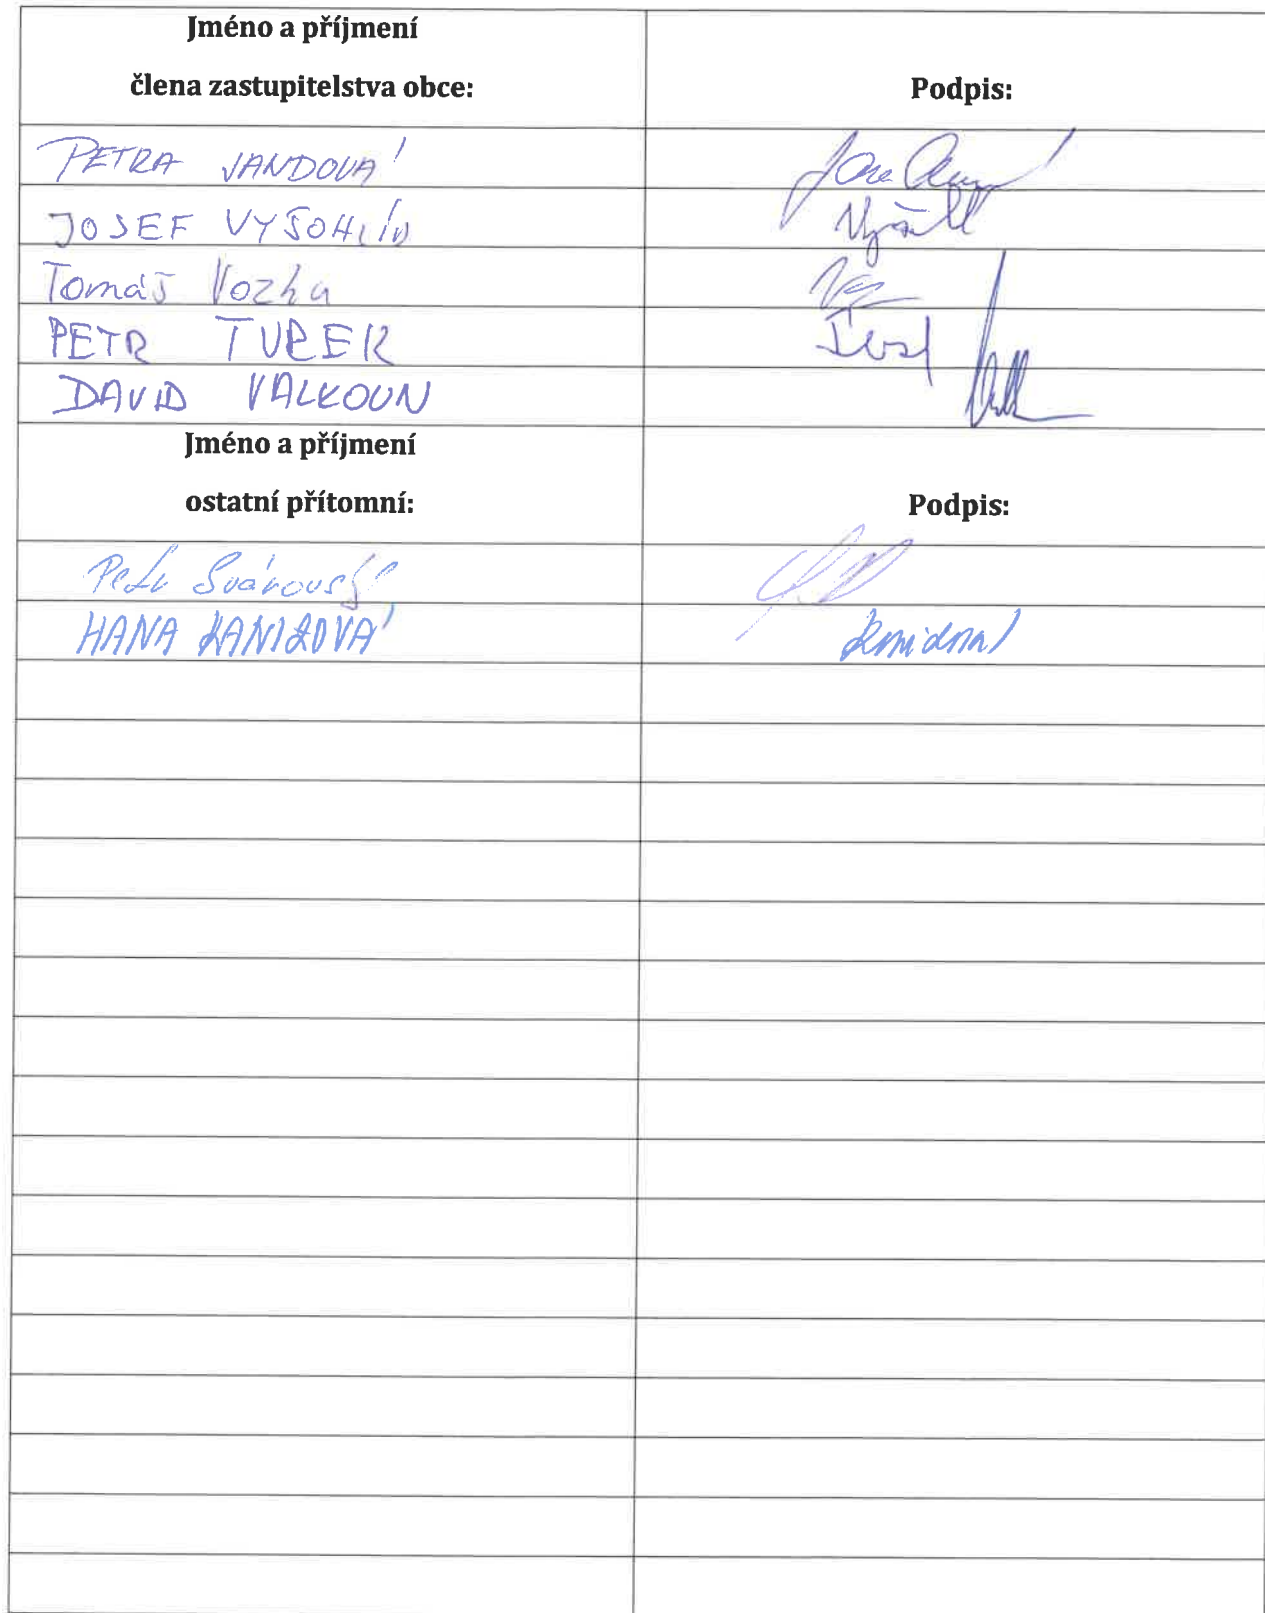 Jméno a příjmení
člena zastupitelstva obce:
Podpis:
PETRA JANDOVÁ
JOSEF VYŠOHLÍD
Tomáš Vozka
PETR TUREK
DAVID VALKOUN
Jméno a příjmení
ostatní přítomní:
Podpis:
Petr Svárovský
HANA